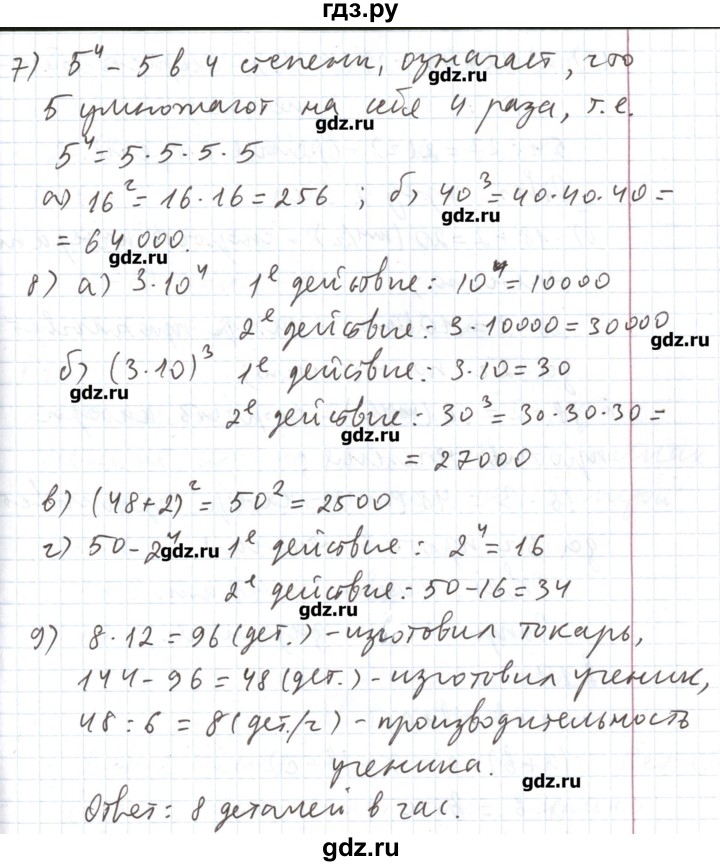 гдз.ру
7) 5⁴ – 5 в 4 степени, означает, что
gdz.ru
5 умножают на себя 4 раза, т.е.
gdz.ru
5⁴ = 5·5·5·5
а) 16² = 16·16 = 256 ; б) 40³ = 40·40·40 =
gdz.ru
= 64000.
gdz.ru
8) а) 3·10⁴ 1е действие: 10⁴ = 10000
2е действие: 3·10000 = 30000
gdz.ru
б) (3·10)³ 1е действие: 3·10 = 30
gdz.ru
2е действие: 30³ = 30·30·30 =
gdz.ru
= 27000
в) (48+2)² = 50² = 2500
г) 50-2⁴ gdz.ru 1е действие: 2⁴ = 16
2е действие: 50-16 = 34
gdz.ru
9) 8·12 = 96 (дет.) – изготовил токарь,
144-96 = 48 (дет.) – изготовил ученик,
gdz.ru
48:6 = 8 (дет/ч) – производительность
ученика.
gdz.ru
Ответ: 8 деталей в час.
gdz.ru